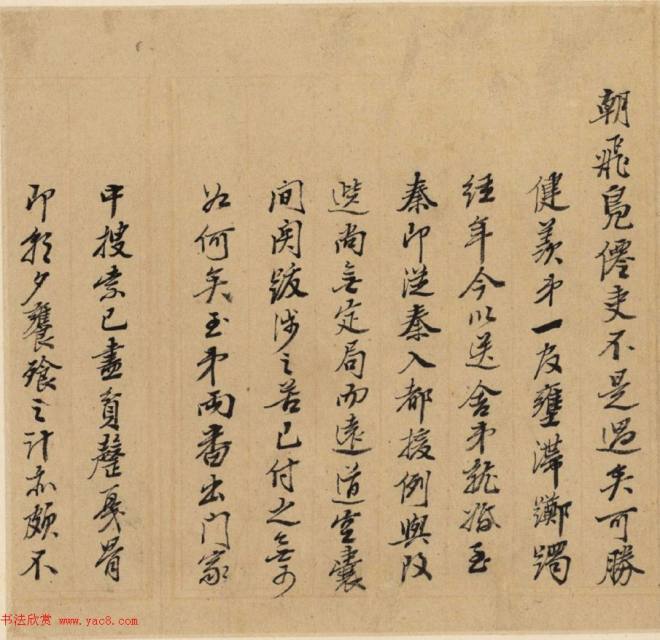 朝飛鳧僊吏不是過矣可勝
健羨弟一友壅滯躑躅
經年今以送舍弟就婚至
秦即從秦入都援例與改
選尚無定局而遠道空囊
間関跋涉之苦已付之無可
如何矣至弟兩番出门家
中搜索已盡負釐戛骨
即朝夕饔飧之计亦頗不
书法欣赏 www.yac8.com